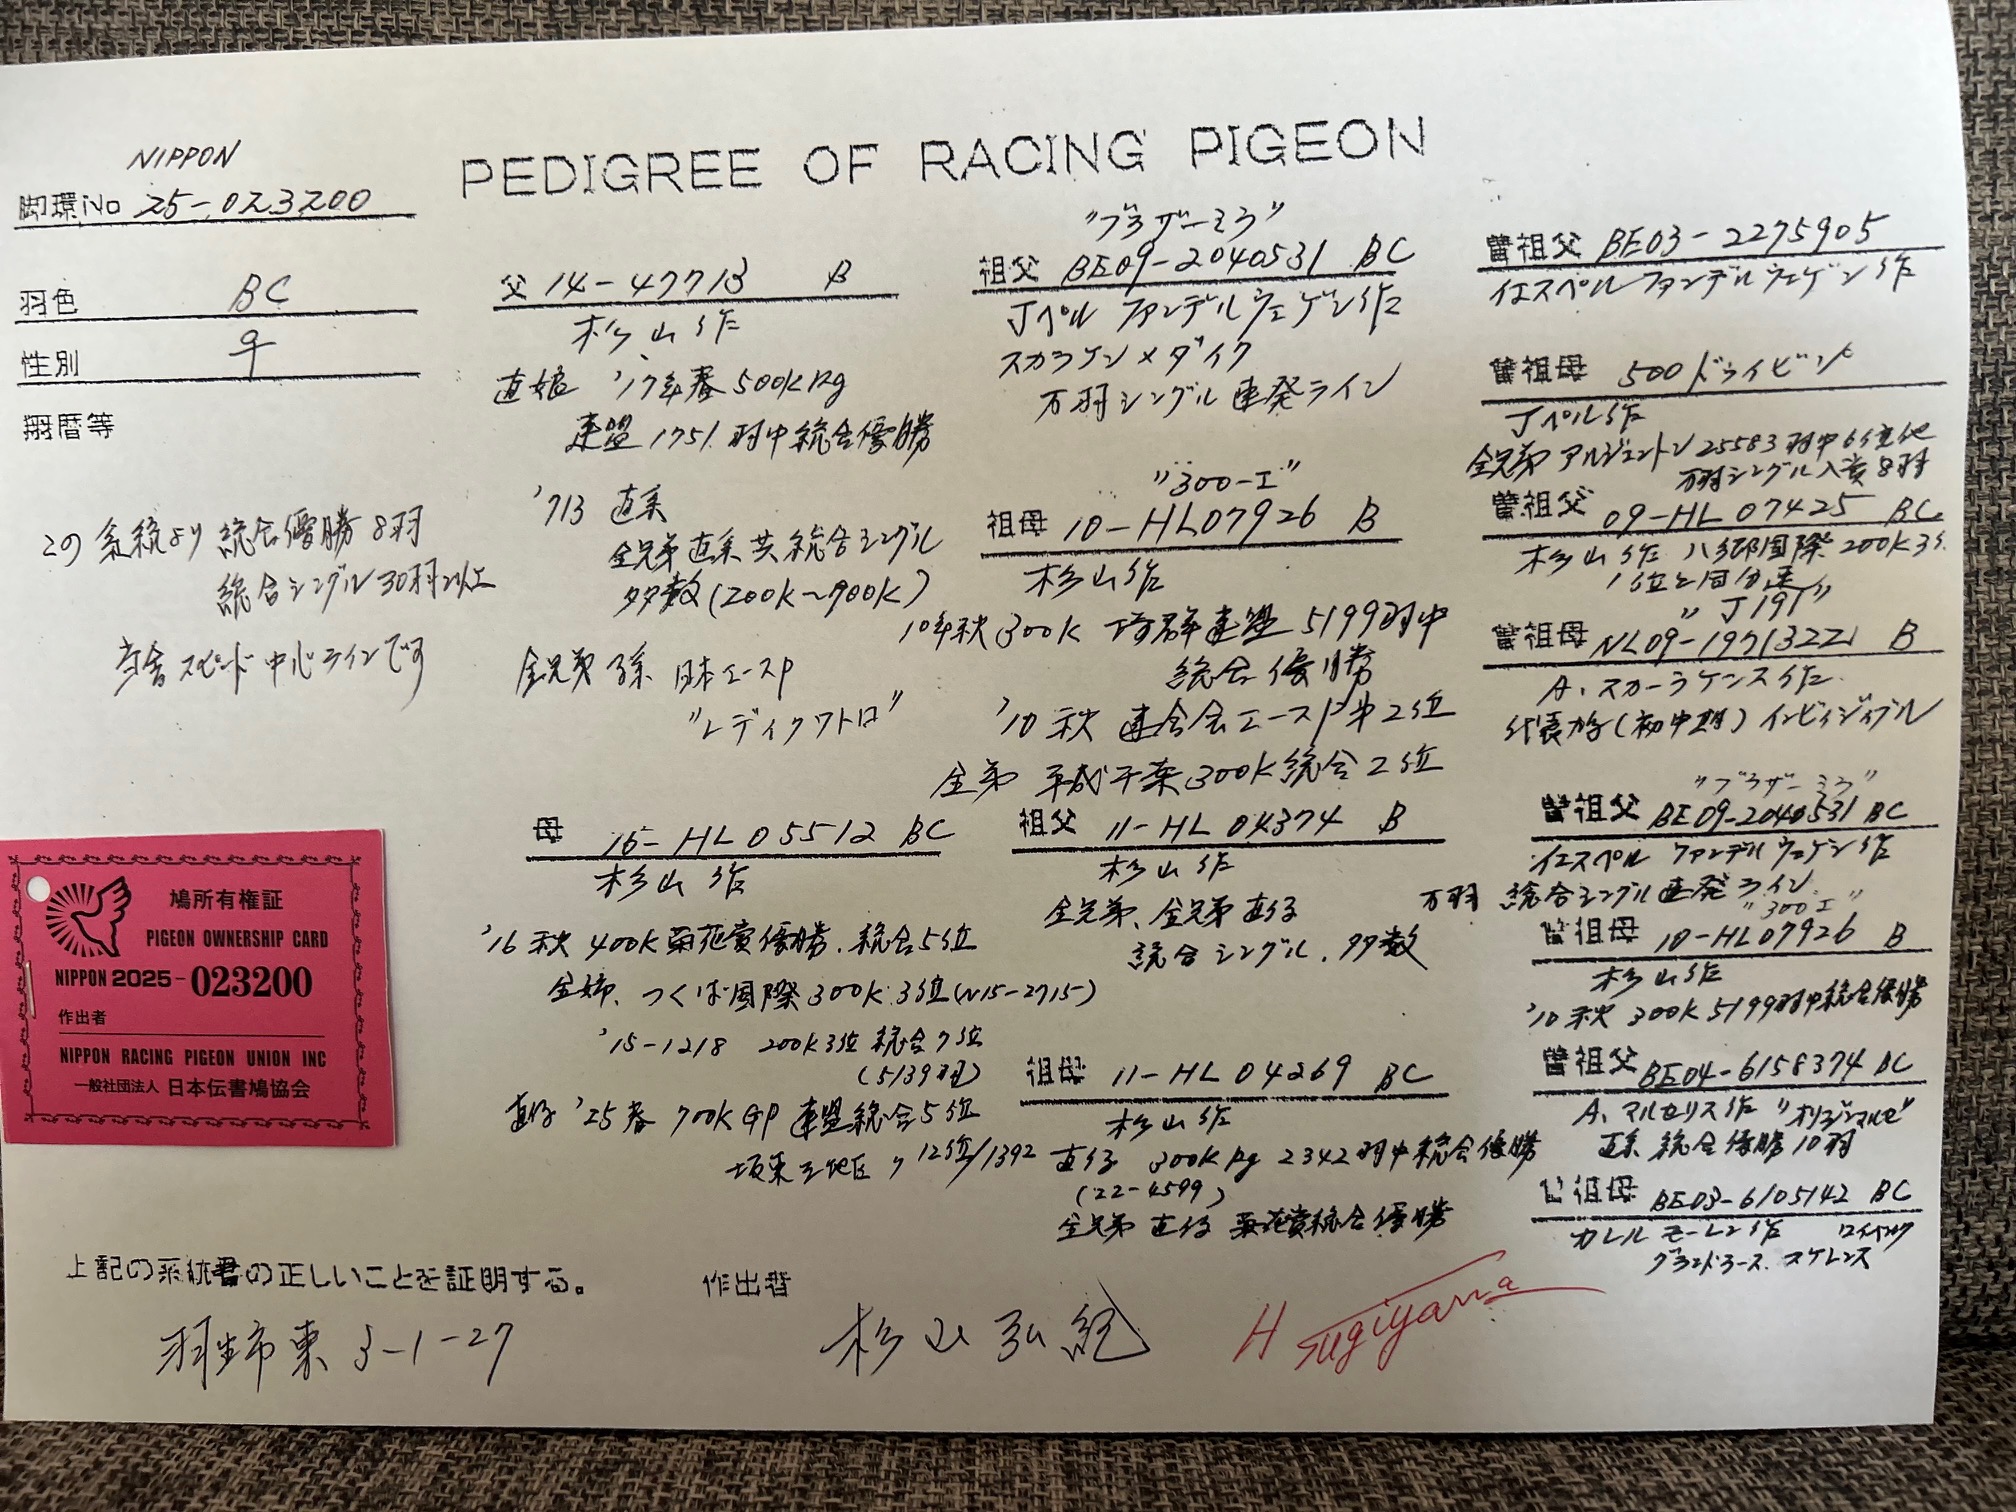 PEDIGREE OF RACING PIGEON
NIPPON
脚環No 25-023200
羽色 BC
性別 ♀
翔歴等
この系統より総合優勝8羽
総合シングル30羽以上
当舎スピード中心ラインです
父 14-47713 B
杉山作
直娘 '17年春500KRg
連盟1751羽中総合優勝
'713 直系
全兄弟直系共総合シングル
多数(200K〜900K)
全兄弟孫 日本エースP
"レディクワトロ"
母 16-HL05512 BC
杉山作
'16秋400K菊花賞優勝.総合5位
全姉、つくば国際300K3位(N15-2715)
'15-1218 200K3位総合7位
(5139羽)
直仔'25春700KGP連盟総合5位
坂東三地区 〃 12位/1392
"ブラザーミラ"
祖父 BE09-2040531 BC
Jペル ファンデルウェゲン作
スカラケン×ダイク
万羽シングル連発ライン
"300-エ"
祖母 10-HL07926 B
杉山作
10年秋300K 埼群連盟5199羽中
総合優勝
'10秋連合会エースP第2位
全弟 平成千葉300K総合2位
祖父 11-HL04374 B
杉山作
全兄弟、全兄弟直仔
総合シングル.多数
祖母 11-HL04269 BC
杉山作
直仔 300KRg2342羽中総合優勝
(22-4599)
全兄弟直仔 菊花賞総合優勝
曾祖父 BE03-2275905
イエスペルファンデルウェゲン作
曾祖母 500ドライビン
Jペル作
全兄弟アルジェントン25583羽中6位他
万羽シングル入賞8羽
曾祖父 09-HL07425 BC
杉山作 八郷国際200K3位
1位と同分速
"J191"
曾祖母 NL09-1971322 B
A.スカーラケンス作
代表鳩(初中期)インビィジィブル
"ブラザーミラ"
曾祖父 BE09-2040531 BC
イエスペル ファンデルウェゲン作
万羽 総合シングル連発ライン
"300エ"
曾祖母 10-HL07926 B
杉山作
'10秋300K5199羽中総合優勝
曾祖父 BE04-6158374 BC
A.マルセリス作"オリジナルセ"
直系総合優勝10羽
曾祖母 BE03-6105142 BC
カレルモーレン作
グランドスース.スケレンス
鳩所有権証
PIGEON OWNERSHIP CARD
NIPPON 2025-023200
作出者
NIPPON RACING PIGEON UNION INC
一般社団法人 日本伝書鳩協会
上記の系統書の正しいことを証明する。
羽生市東3-1-27
作出者
杉山弘紀
H Sugiyama